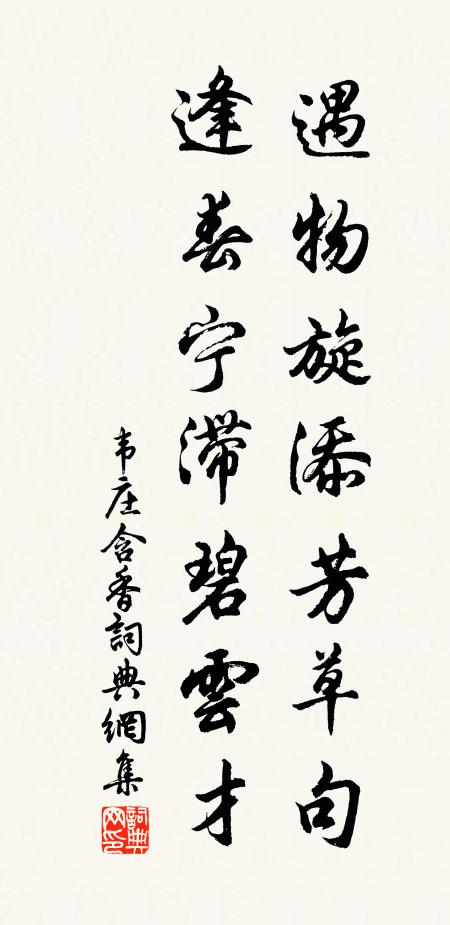 遇物旋添芳草句
逢春宁滞碧雲才
韦庄含香詞典網集
詞典网印